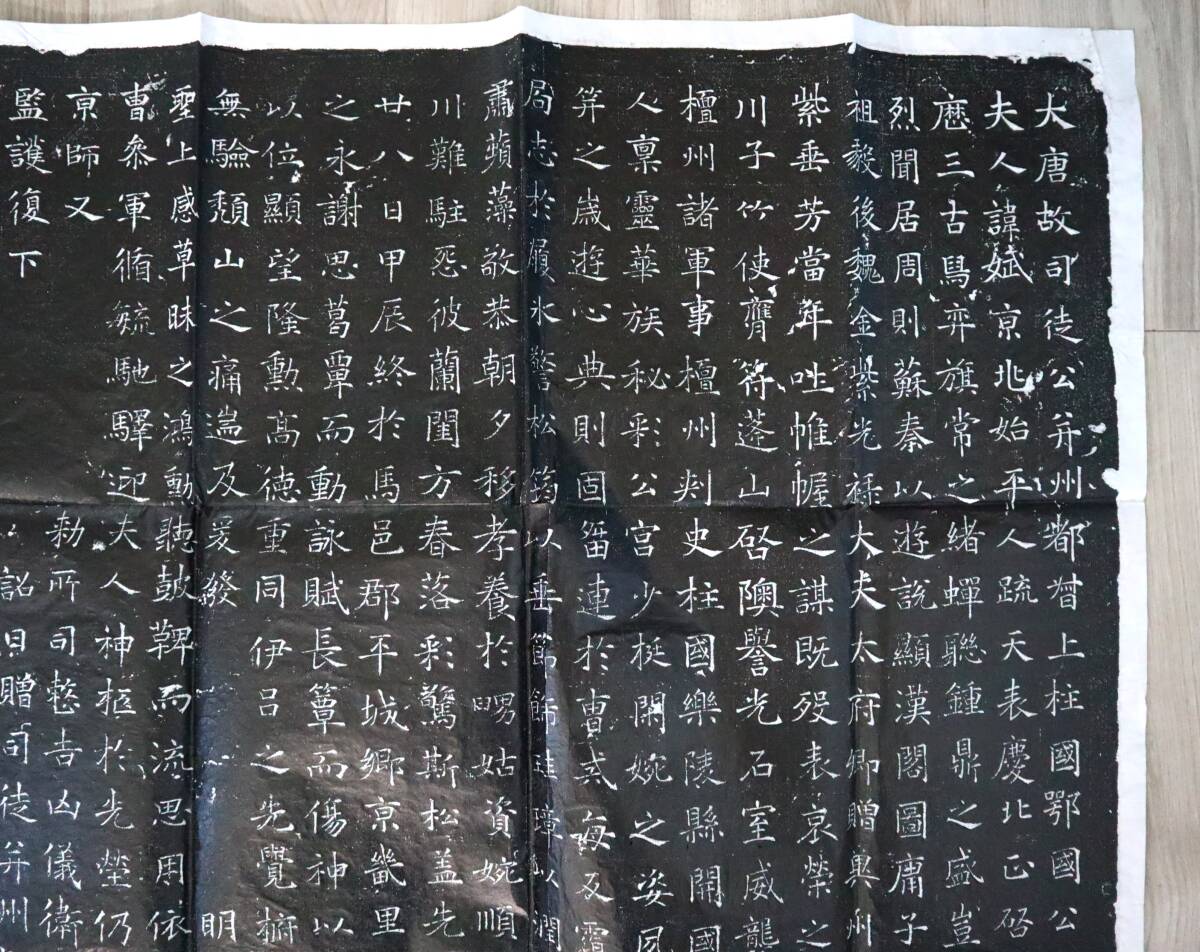 大唐故司徒公并州都督上柱國鄂國公
夫人諱娬京兆始平人疏天表慶北正啓
曆三古馬弈旗常之緒蟬聯鍾鼎之盛豈
烈聞居周則蘇秦以遊說顯漢閣圖庸子
祖毅後魏金紫光祿大夫太府卿贈兗州
紫垂芳當年唑帷幄之謀既歿表哀榮之
川子竹使膺符蓬山啓隩譽光石室威龍
檀州諸軍事檀州刾史柱國樂陵縣開國
人稟靈華族秘彩公宮少挺閑婉之姿夙
笄之歲遊心典則固留連於曹式每反霜
局志於履氷警松筠以垂節飾珪璋以潤
肅蘋藻敬恭朝夕移孝養於嚶姑資婉順
川難駐惡彼蘭闈方春落彩驚斯松盖先
廿八日甲辰終於馬邑郡平城鄉京畿里
之永謝思葛覃而動詠賦長簟而傷神以
以位顯望隆勳高德重同伊呂之先覺擗
無驗頹山之痛遄及爰發 明
聖上感草昧之鴻勳聽鼓鞞而流思用依
曹叅軍循毓馳驛迎夫人神柩於先塋仍
京師又 勅所司整吉凶儀衛
監護復下 詔曰贈司徒并州